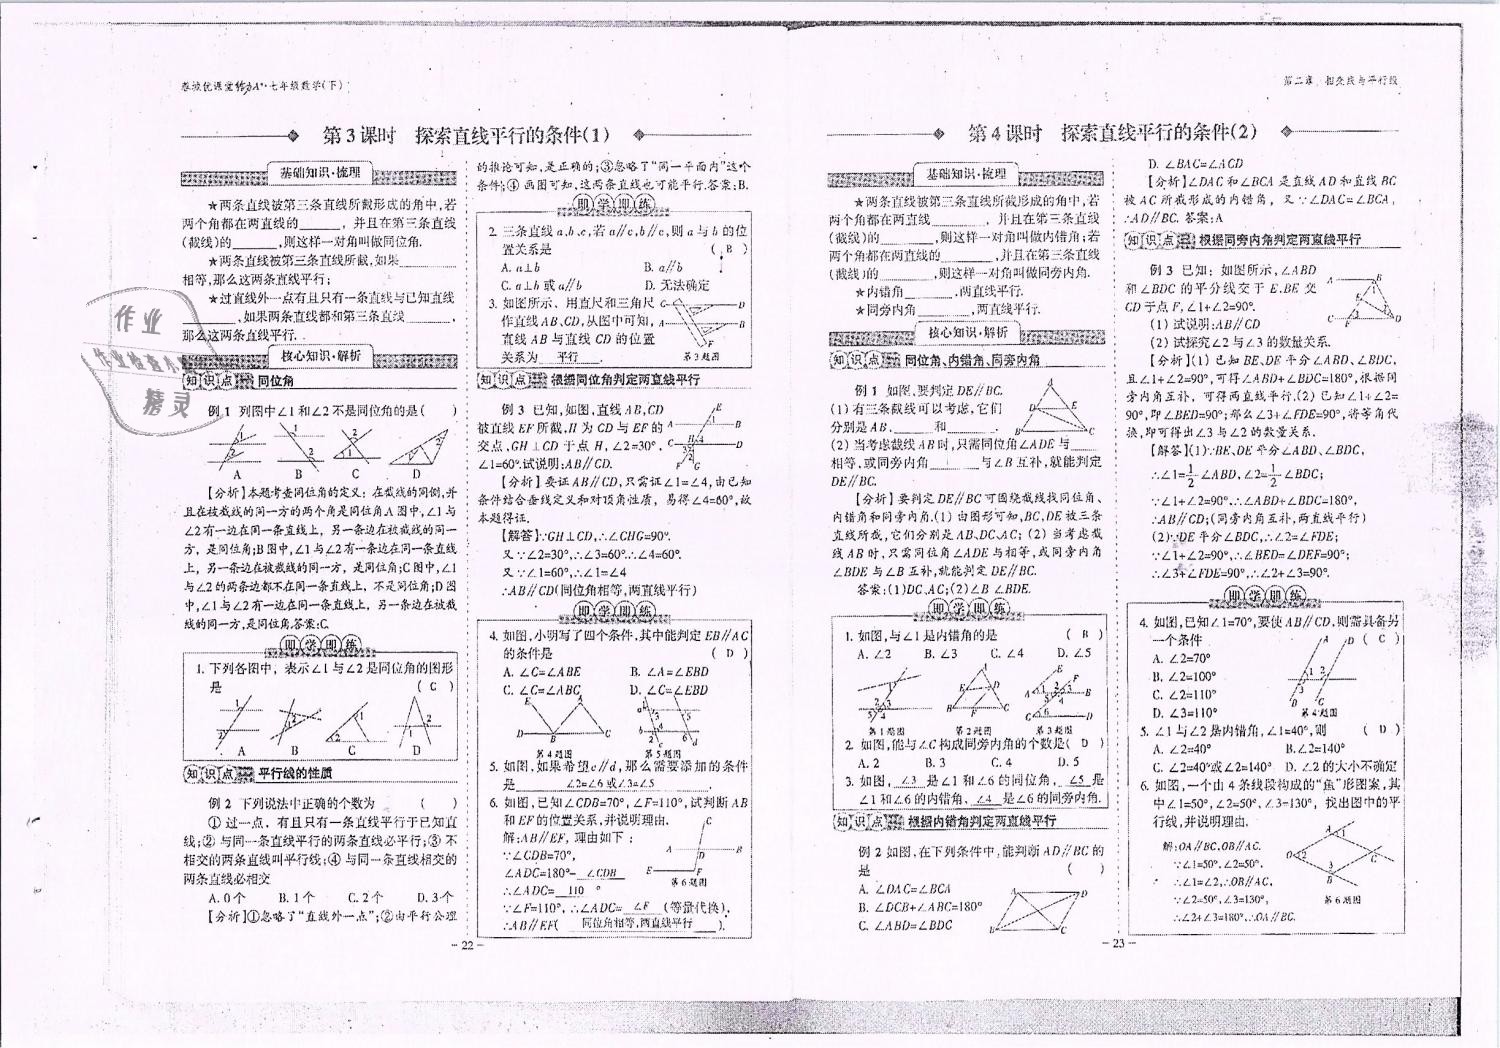 七年级数学(下)
第3课时 探索直线平行的条件(1)
基础知识·梳理
★两条直线被第三条直线所截形成的角中,若
两个角都在两直线的______,并且在第三条直线
(截线)的______,则这样一对角叫做同位角.
★两条直线被第三条直线所截,如果______
相等,那么这两条直线平行;
★过直线外一点有且只有一条直线与已知直线
______,如果两条直线都和第三条直线______,
那么这两条直线平行.
核心知识·解析
知识点一 同位角
例1 列图中∠1和∠2不是同位角的是( )
A B C D
【分析】本题考查同位角的定义:在截线的同侧,并
且在被截线的同一方的两个角是同位角.A图中,∠1与
∠2有一边在同一条直线上,另一条边在被截线的同一
方,是同位角;B图中,∠1与∠2有一条边在同一条直线
上,另一条边在被截线的同一方,是同位角;C图中,∠1
与∠2的两条边都不在同一条直线上,不是同位角;D图
中,∠1与∠2有一边在同一条直线上,另一条边在被截
线的同一方,是同位角.答案:C.
即学即练
1. 下列各图中,表示∠1与∠2是同位角的图形
是 ( C )
A B C D
知识点二 平行线的性质
例2 下列说法中正确的个数为 ( )
①过一点,有且只有一条直线平行于已知直
线;②与同一条直线平行的两条直线必平行;③不
相交的两条直线叫平行线;④与同一条直线相交的
两条直线必相交
A. 0个 B. 1个 C. 2个 D. 3个
【分析】①忽略了“直线外一点”;②由平行公理
的推论可知,是正确的;③忽略了“同一平面内”这个
条件;④画图可知,这两条直线也可能平行.答案:B.
即学即练
2. 三条直线a、b、c,若a∥c,b∥c,则a与b的位
置关系是 ( B )
A. a⊥b B. a∥b
C. a⊥b或a∥b D. 无法确定
3. 如图所示、用直尺和三角尺
作直线AB、CD,从图中可知,
直线AB与直线CD的位置
关系为 平行 .
第3题图
知识点三 根据同位角判定两直线平行
例3 已知,如图,直线AB,CD
被直线EF所截,H为CD与EF的
交点,GH⊥CD于点H,∠2=30°,
∠1=60°.试说明:AB∥CD.
【分析】要证AB∥CD,只需证∠1=∠4,由已知
条件结合垂线定义和对顶角性质,易得∠4=60°,故
本题得证.
【解答】∵GH⊥CD,∴∠CHG=90°.
又∵∠2=30°,∴∠3=60°.∴∠4=60°.
又∵∠1=60°,∴∠1=∠4
∴AB∥CD(同位角相等,两直线平行)
即学即练
4. 如图,小明写了四个条件,其中能判定EB∥AC
的条件是 ( D )
A. ∠C=∠ABE B. ∠A=∠EBD
C. ∠C=∠ABC D. ∠C=∠EBD
第4题图 第5题图
5. 如图,如果希望c∥d,那么需要添加的条件
是 ∠2=∠6或∠3=∠5 .
6. 如图,已知∠CDB=70°,∠F=110°,试判断AB
和EF的位置关系,并说明理由.
解:AB∥EF,理由如下:
∵∠CDB=70°,
∠ADC=180°- ∠CDB
∴∠ADC= 110 °
∵∠F=110°,∴∠ADC= ∠F (等量代换),
∴AB∥EF( 同位角相等,两直线平行 ).
第6题图
- 22 -
第二章 相交线与平行线
第4课时 探索直线平行的条件(2)
基础知识·梳理
★两条直线被第三条直线所截形成的角中,若
两个角都在两直线______,并且在第三条直线
(截线)的______,则这样一对角叫做内错角;若
两个角都在两直线的______,并且在第三条直线
(截线)的______,则这样一对角叫做同旁内角.
★内错角______,两直线平行.
★同旁内角______,两直线平行.
核心知识·解析
知识点一 同位角、内错角、同旁内角
例1 如图,要判定DE∥BC.
(1)有三条截线可以考虑,它们
分别是AB、______和______.
(2)当考虑截线AB时,只需同位角∠ADE与____
相等,或同旁内角______与∠B互补,就能判定
DE∥BC.
【分析】要判定DE∥BC可围绕截线找同位角、
内错角和同旁内角.(1)由图形可知,BC、DE被三条
直线所截,它们分别是AB、DC、AC;(2)当考虑截
线AB时,只需同位角∠ADE与相等,或同旁内角
∠BDE与∠B互补,就能判定DE∥BC.
答案:(1)DC、AC;(2)∠B ∠BDE.
即学即练
1. 如图,与∠1是内错角的是 ( B )
A. ∠2 B. ∠3 C. ∠4 D. ∠5
第1题图 第2题图 第3题图
2. 如图,能与∠C构成同旁内角的个数是( D )
A. 2 B. 3 C. 4 D. 5
3. 如图, ∠3 是∠1和∠6的同位角, ∠5 是
∠1和∠6的内错角、 ∠4 是∠6的同旁内角.
知识点二 根据内错角判定两直线平行
例2 如图,在下列条件中,能判断AD∥BC的
是 ( )
A. ∠DAC=∠BCA
B. ∠DCB+∠ABC=180°
C. ∠ABD=∠BDC
D. ∠BAC=∠ACD
【分析】∠DAC和∠BCA是直线AD和直线BC
被AC所截形成的内错角,又∵∠DAC=∠BCA,
∴AD∥BC.答案:A
知识点三 根据同旁内角判定两直线平行
例3 已知:如图所示,∠ABD
和∠BDC的平分线交于E,BE交
CD于点F,∠1+∠2=90°.
(1)试说明:AB∥CD
(2)试探究∠2与∠3的数量关系.
【分析】(1)已知BE、DE平分∠ABD、∠BDC,
且∠1+∠2=90°,可得∠ABD+∠BDC=180°,根据同
旁内角互补,可得两直线平行.(2)已知∠1+∠2=
90°,即∠BED=90°;那么∠3+∠FDE=90°,将等角代
换,即可得出∠3与∠2的数量关系.
【解答】(1)∵BE、DE平分∠ABD、∠BDC,
∴∠1=1/2∠ABD,∠2=1/2∠BDC;
∵∠1+∠2=90°,∴∠ABD+∠BDC=180°,
∴AB∥CD;(同旁内角互补,两直线平行)
(2)∵DE平分∠BDC,∴∠2=∠FDE;
∵∠1+∠2=90°,∴∠BED=∠DEF=90°;
∴∠3+∠FDE=90°,∴∠2+∠3=90°.
即学即练
4. 如图,已知∠1=70°,要使AB∥CD,则需具备另
一个条件 ( C )
A. ∠2=70°
B. ∠2=100°
C. ∠2=110°
D. ∠3=110°
第4题图
5. ∠1与∠2是内错角,∠1=40°,则 ( D )
A. ∠2=40° B. ∠2=140°
C. ∠2=40°或∠2=140° D. ∠2的大小不确定
6. 如图,一个由4条线段构成的“鱼”形图案,其
中∠1=50°,∠2=50°,∠3=130°,找出图中的平
行线,并说明理由.
解:OA∥BC,OB∥AC.
∵∠1=50°,∠2=50°,
∴∠1=∠2,∴OB∥AC,
∵∠2=50°,∠3=130°,
∴∠2+∠3=180°,∴OA∥BC.
第6题图
- 23 -
作业
作业检查小
精灵